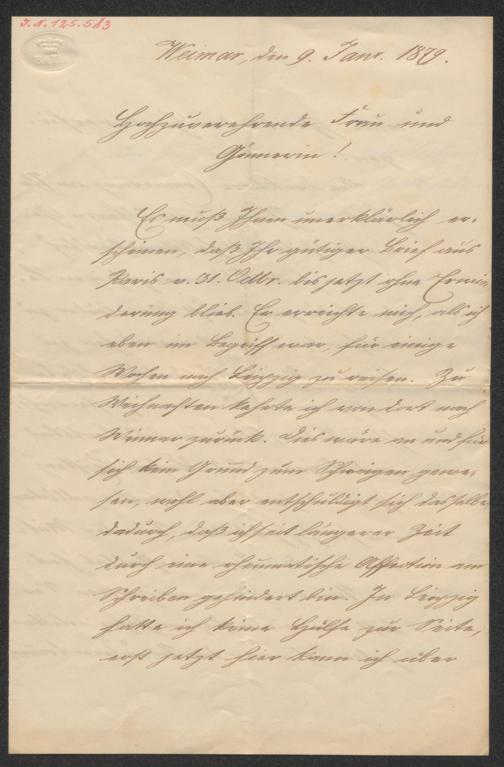 J.N. 125.583
Weimar, den 9. Janr. 1879.
Hochzuverehrende Frau und
Gönnerin!
Es muß Ihnen unerklärlich er-
scheinen, daß Ihr gütiger Brief aus
Paris v. 31. Octbr. bis jetzt ohne Erwie-
derung blieb. Er erreichte mich, als ich
eben im Begriff war, für einige
Wochen nach Leipzig zu reisen. Zu
Weihnachten kehrte ich von dort nach
Weimar zurück. Dies wäre an und für
sich kein Grund zum Schweigen gewe-
sen, wohl aber entschuldigt sich dasselbe
dadurch, daß ich seit längerer Zeit
durch eine rheumatische Affection am
Schreiben gehindert bin. In Leipzig
hatte ich keine Hülfe zur Seite,
erst jetzt hier kann ich über